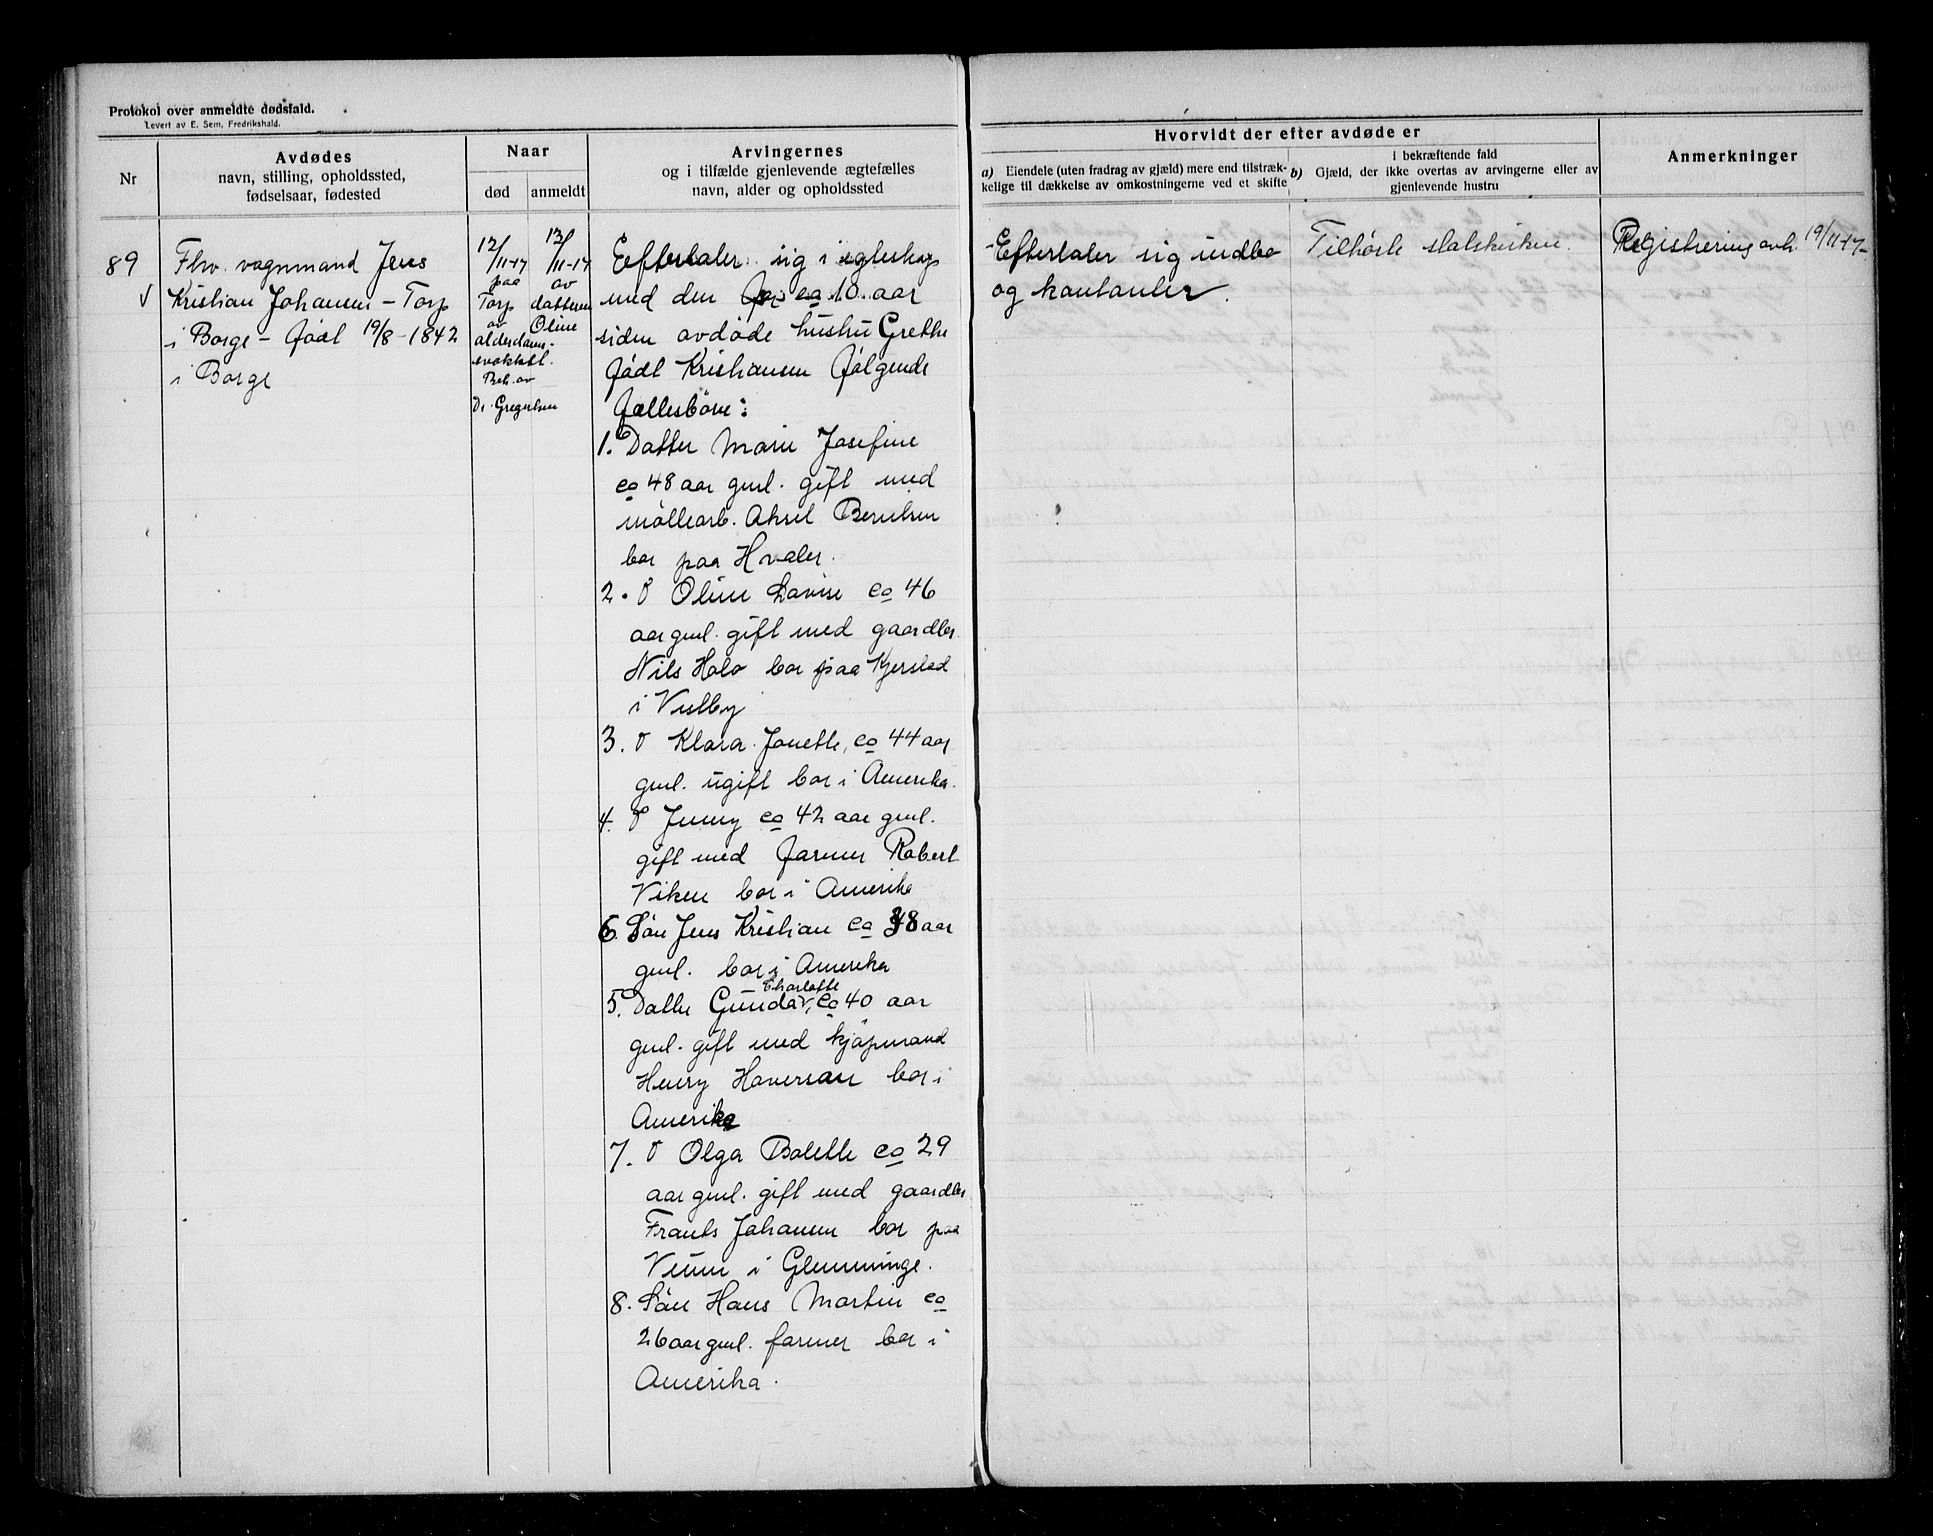 Protokol over anmeldte dødsfald.
Levert av E. Sem, Fredrikshald.
Nr
Avdødes
navn, stilling, opholdssted,
fødselsaar, fødested
Naar
død
anmeldt
Arvingernes
og i tilfælde gjenlevende ægtefælles
navn, alder og opholdssted
Hvorvidt der efter avdøde er
a) Eiendele (uten fradrag av gjæld) mere end tilstræk-
kelige til dækkelse av omkostningerne ved et skifte
i bekræftende fald
b) Gjæld, der ikke overtas av arvingerne eller av
gjenlevende hustru
Anmerkninger
89
Fhv. vognmand Jens
Kristian Johansen - Torp
i Borge - født 19/8-1842
i Borge
12/11-17
paa
Torp
av
alderdoms-
svakhet.
Beh. av
Dr. Gregersen
13/11-17
av
datteren
Oline
Efterlater sig i egteskap
med den for ca 10 aar
siden avdøde hustru Grethe
født Kristiansen følgende
fællesbörn:
1. Datter Marie Josefine
ca 48 aar gml. gift med
möllearb. Aksel Berntsen
bor paa Hvaler.
2. D Oline Lovise ca 46
aar gml. gift med gaardbr.
Nils Holo bor paa Kjerstad
i Vestby
3. D Klara Jonette, ca 44 aar
gml. ugift bor i Amerika.
4. D Jenny ca 42 aar gml.
gift med farmer Robert
Viken bor i Amerika
6. Sön Jens Kristian ca 38 aar
gml. bor i Amerika
Charlotte
5. Datter Gunda, ca 40 aar
gml. gift med kjöpmand
Henry Haversan bor i
Amerika
7. D Olga Bolette ca 29
aar gml. gift med gaardbr
Frants Johansen bor paa
Veum i Glemminge.
8. Sön Hans Martin ca
26 aar gml. farmer bor i
Amerika.
Efterlater sig indbo
og kontanter.
Tilhörte statskirken.
Registrering avh. 19/11-17-